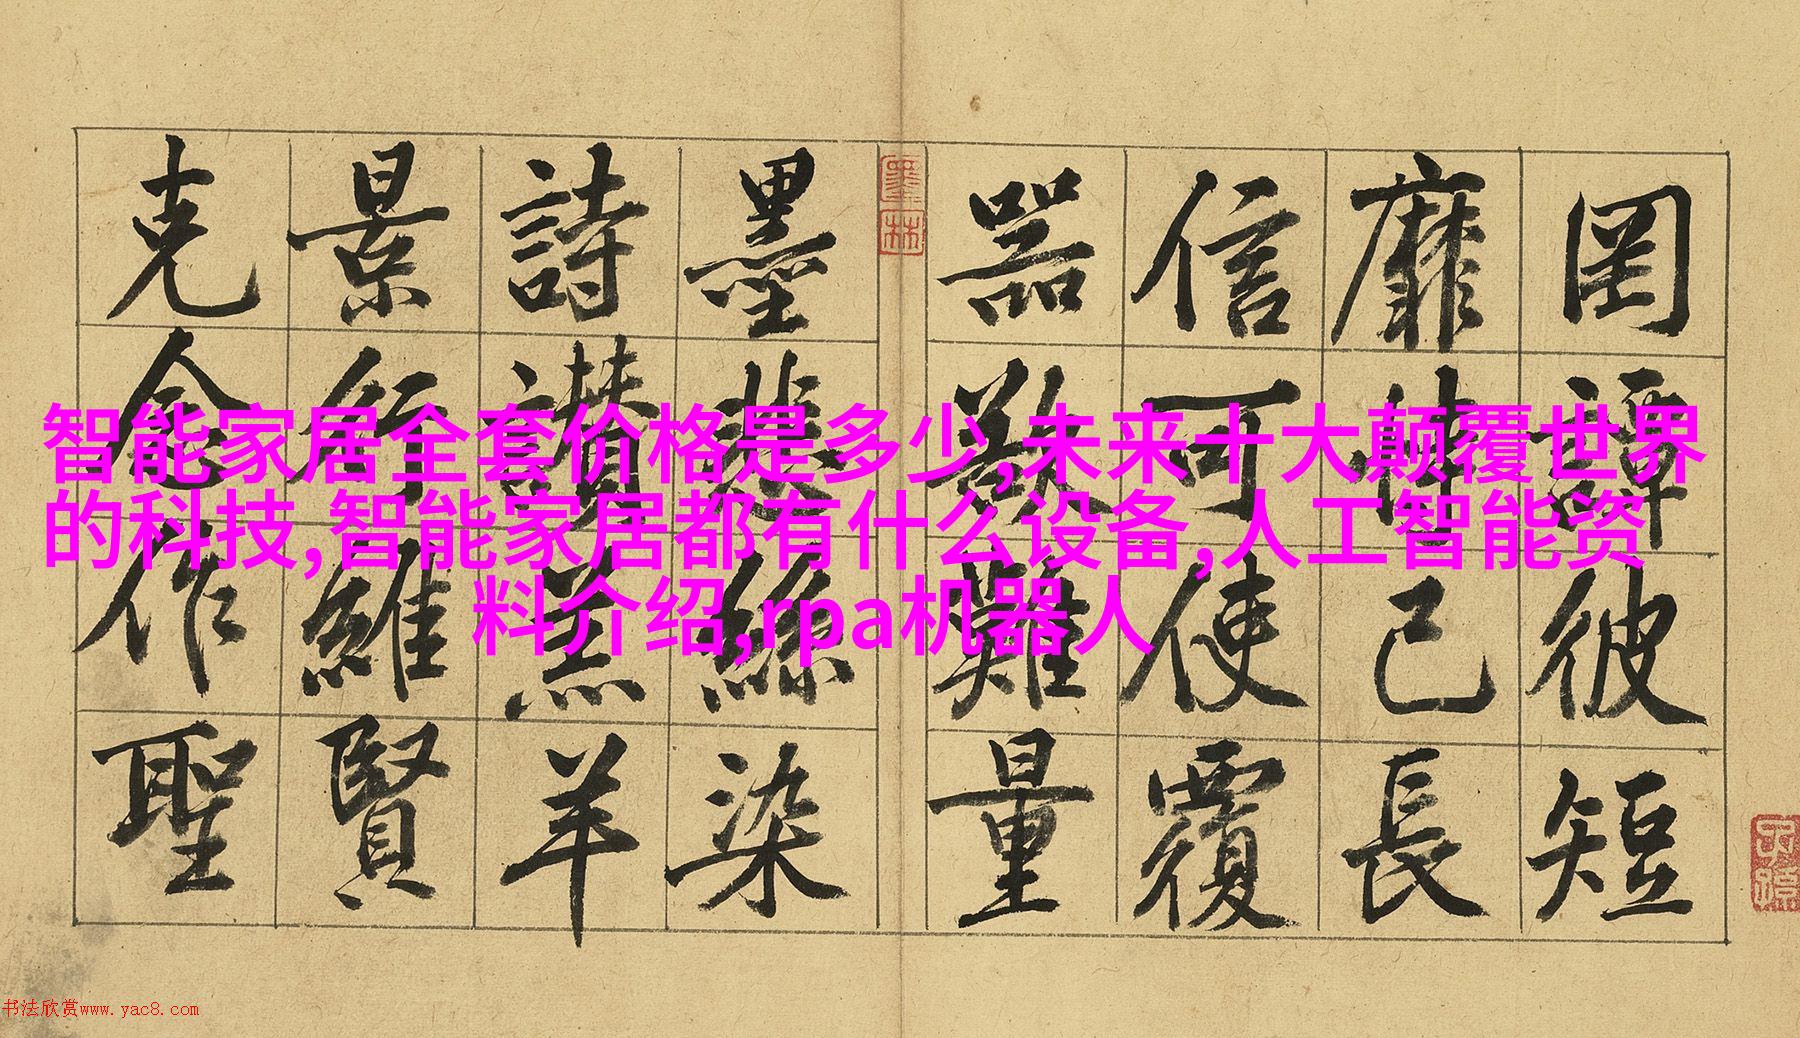 智能家居全套价格是多少,未来十大颠覆世界
的科技,智能家居都有什么设备,人工智能资
料介绍,rpa机器人
罔譚彼短
靡恃己長
信可使覆
器欲難量
墨林
墨悲絲染
詩讚羔羊
景行維賢
克念作聖
书法欣赏www.yac8.com